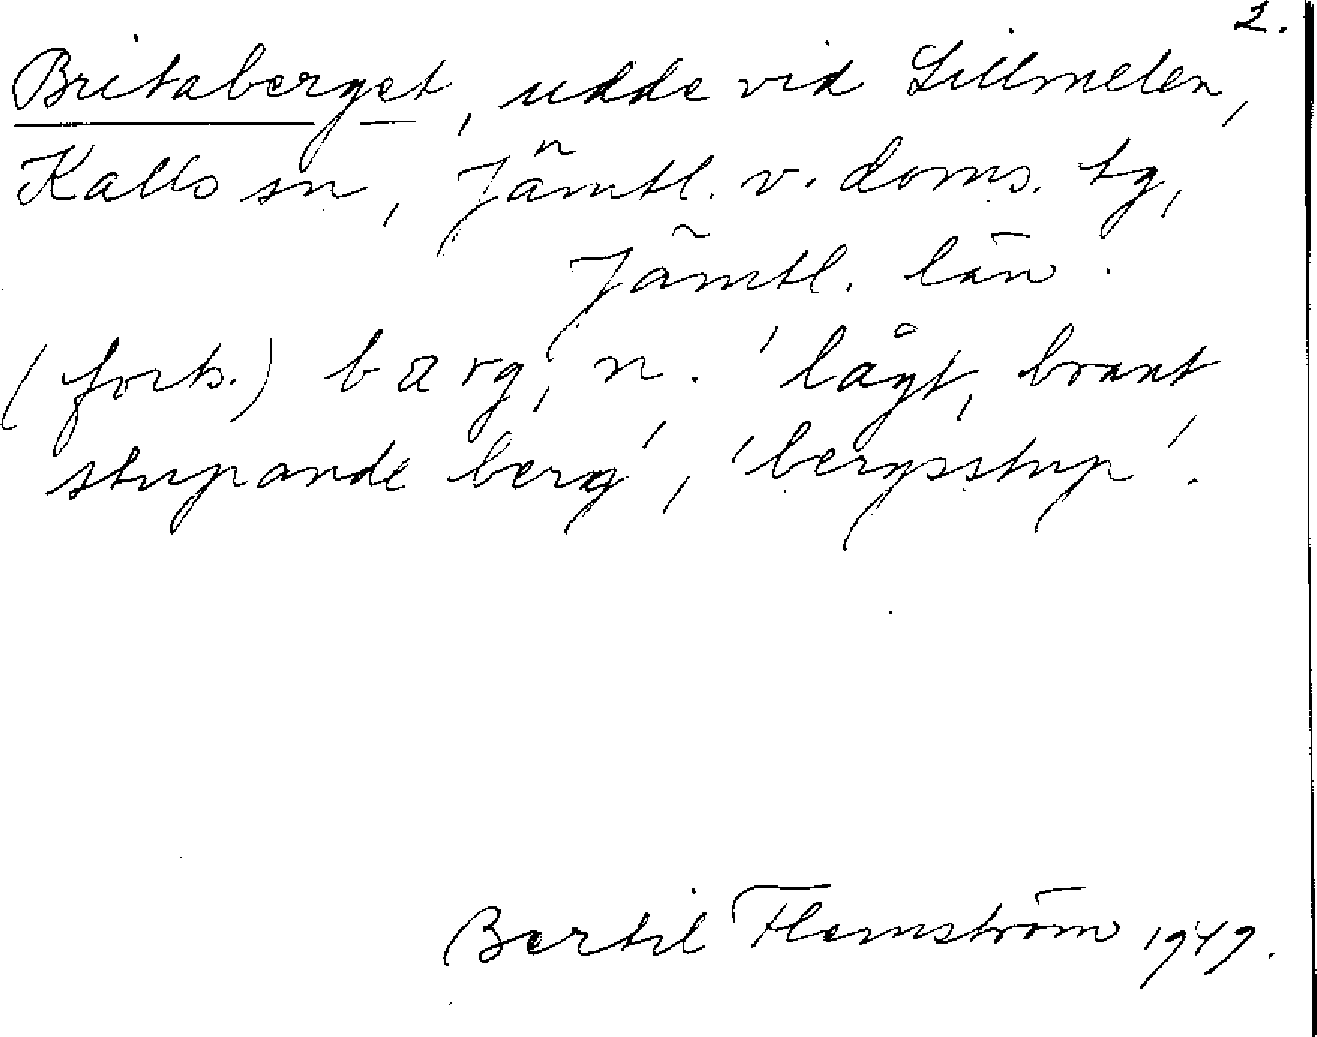 2.
Britaberget, udde vid Lillmelen,
Kalls sn, Jämtl. v. doms. tg,
Jämtl. län.
(forts.) barg, n. 'lågt, brant
stupande berg', 'bergsstup'.
Bertil Flemström 1949.